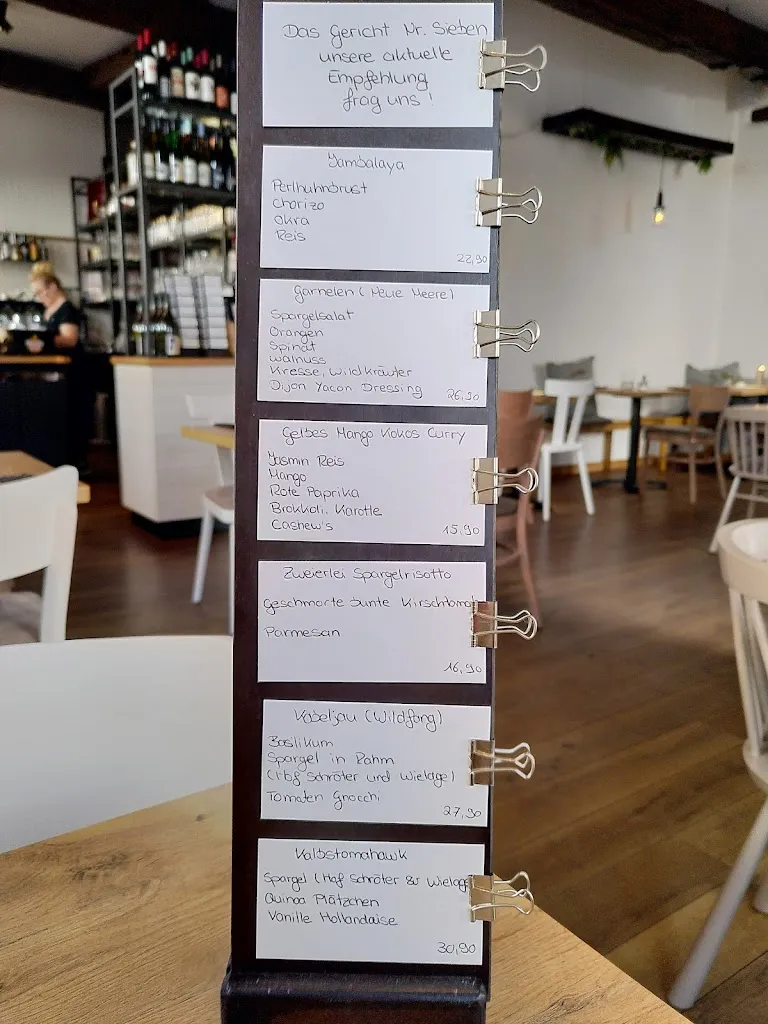 Das Gericht Nr. Sieben
unsere aktuelle
Empfehlung
frag uns!
Jambalaya
Perlhuhnbrust
Chorizo
Okra
Reis
22,90
Garnelen (Neue Meere)
Spargelsalat
Orangen
Spinat
Walnuss
Kresse, Wildkräuter
Dijon Yacon Dressing
26,90
Gelbes Mango Kokos Curry
Jasmin Reis
Mango
Rote Paprika
Brokkoli, Karotte
Cashew's
15,90
Zweierlei Spargelrisotto
Geschmorte bunte Kirschtomat
Parmesan
16,90
Kabeljau (Wildfang)
Basilikum
Spargel in Rahm
(Hof Schröter und Wielage)
Tomaten Gnocchi
27,90
Kalbstomahawk
Spargel (Hof Schröter & Wielage
Quinoa Plätzchen
Vanille Hollandaise
30,90